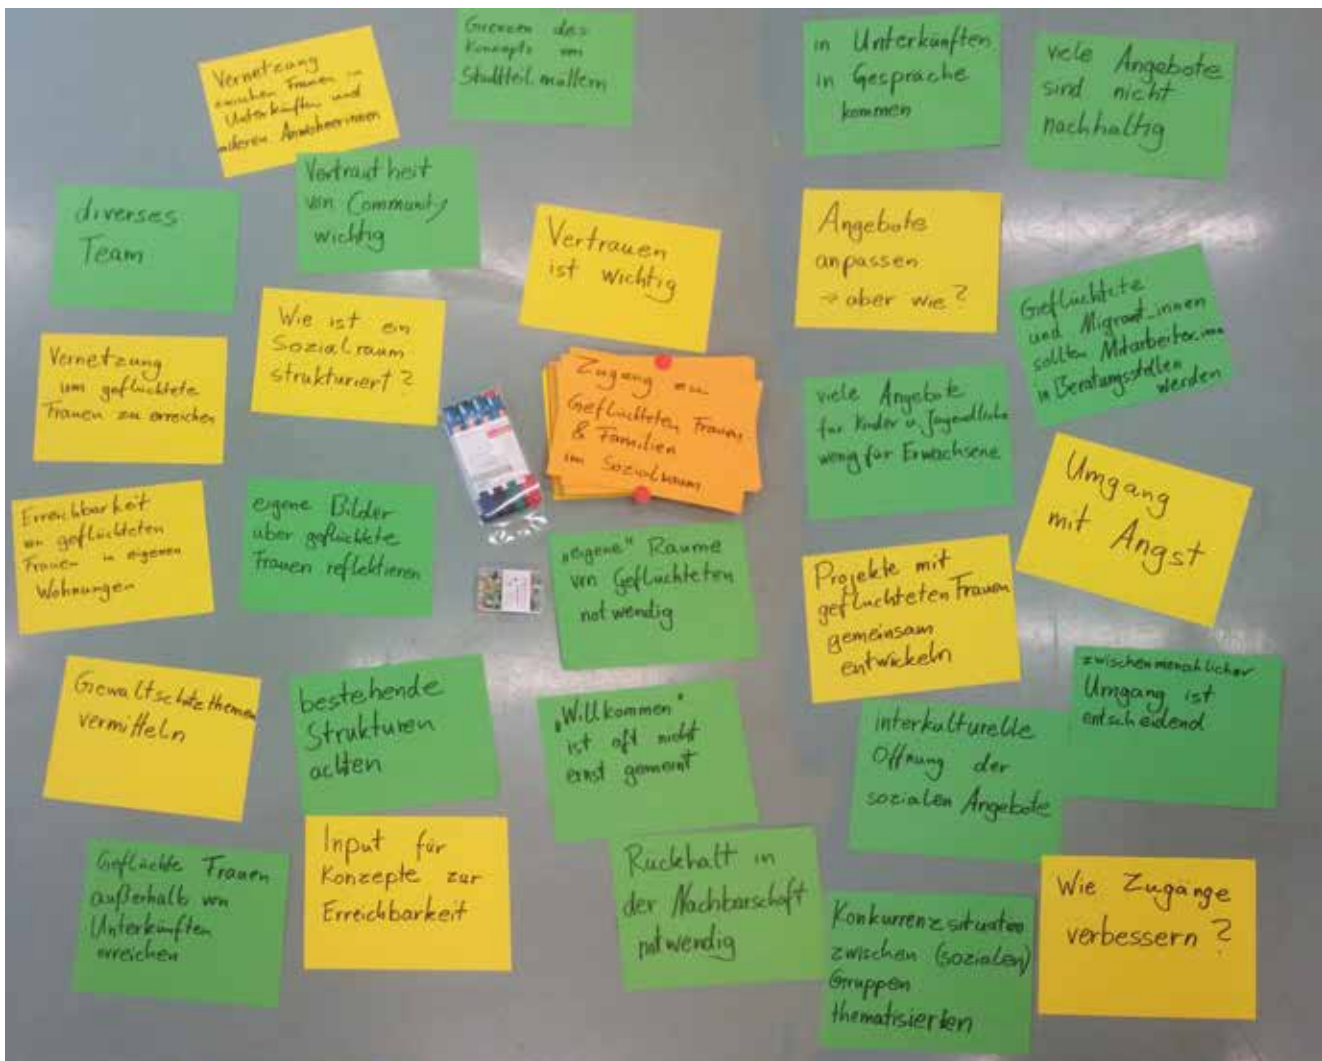 Vernetzung
zwischen Frauen in
Unterkünften und
anderen Anwohnerinnen
Grenzen des
Konzepts von
Stadtteilmüttern
in Unterkünften
in Gespräche
kommen
viele Angebote
sind nicht
nachhaltig
diverses
Team
Vertrautheit
von Community
wichtig
Vertrauen
ist wichtig
Angebote
anpassen
→ aber wie?
Geflüchtete
und Migrant_innen
sollten Mitarbeiter_innen
in Beratungsstellen
werden
Vernetzung
um geflüchtete
Frauen zu erreichen
Wie ist ein
Sozialraum
strukturiert?
Zugang zu
Geflüchteten Frauen
& Familien
im Sozialraum
viele Angebote
für Kinder u. Jugendliche
wenig für Erwachsene
Umgang
mit Angst
Erreichbarkeit
von geflüchteten
Frauen in eigenen
Wohnungen
eigene Bilder
über geflüchtete
Frauen reflektieren
"eigene" Räume
von Geflüchteten
notwendig
Projekte mit
geflüchteten Frauen
gemeinsam
entwickeln
zwischenmenschlicher
Umgang ist
entscheidend
Gewaltschutzthemen
vermitteln
bestehende
Strukturen
achten
"Willkommen"
ist oft nicht
ernst gemeint
interkulturelle
Öffnung der
sozialen Angebote
Geflüchte Frauen
außerhalb von
Unterkünften
erreichen
Input für
Konzepte zur
Erreichbarkeit
Rückhalt in
der Nachbarschaft
notwendig
Konkurrenzsituation
zwischen (sozialen)
Gruppen
thematisierten
Wie Zugänge
verbessern?